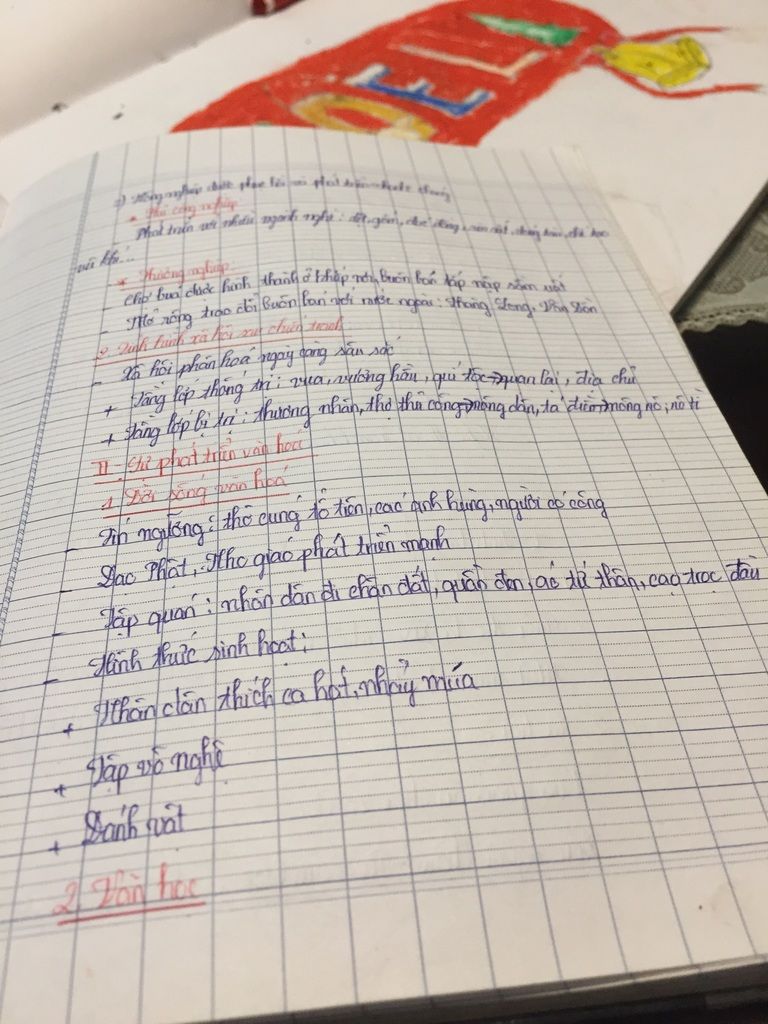 =) Nông nghiệp được phục hồi và phát triển nhanh chóng
* Thủ công nghiệp
Phát triển với nhiều ngành nghề: dệt, gốm,
vũ khí...
* Thương nghiệp
- Chợ buá được hình thành ở khắp nơi, buôn bán tấp nập sầm uất
- Mở rộng trao đổi buôn bán với nước ngoài: Thăng Long, Vân Đồn
2. Tình hình xã hội sau chiến tranh
- Xã hội phân hoá ngày càng sâu sắc
+ Tầng lớp thống trị: vua, vương hầu, quí tộc→quan lại, địa chủ
+ Tầng lớp bị trị: thương nhân, thợ thủ công→nông dân, tá điền→nông nô, nô tì
II- Sự phát triển văn hoá
1 Đời sống văn hoá
- Tín ngưỡng: thờ cúng tổ tiên, các anh hùng, người có công
- Đạo Phật, Nho giáo phát triển mạnh
- Tập quán: nhân dân đi chân đất, quần đen, áo tứ thân, cạo trọc đầu
- Hình thức sinh hoạt:
+ Nhân dân thích ca hát, nhảy múa
+ Tập võ nghệ
+ Đánh vật
2 Văn học